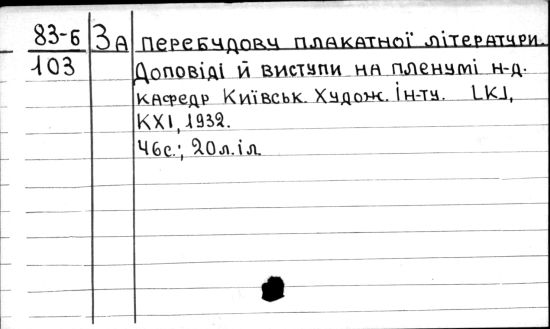 83-Б За перебудову плакатної літератури.
103 Доповіді й виступи на пленумі н-д.
кафедр Київськ. Худож. Ін-ту. [К.],
КХІ, 1932.
46с.; 20л.іл.